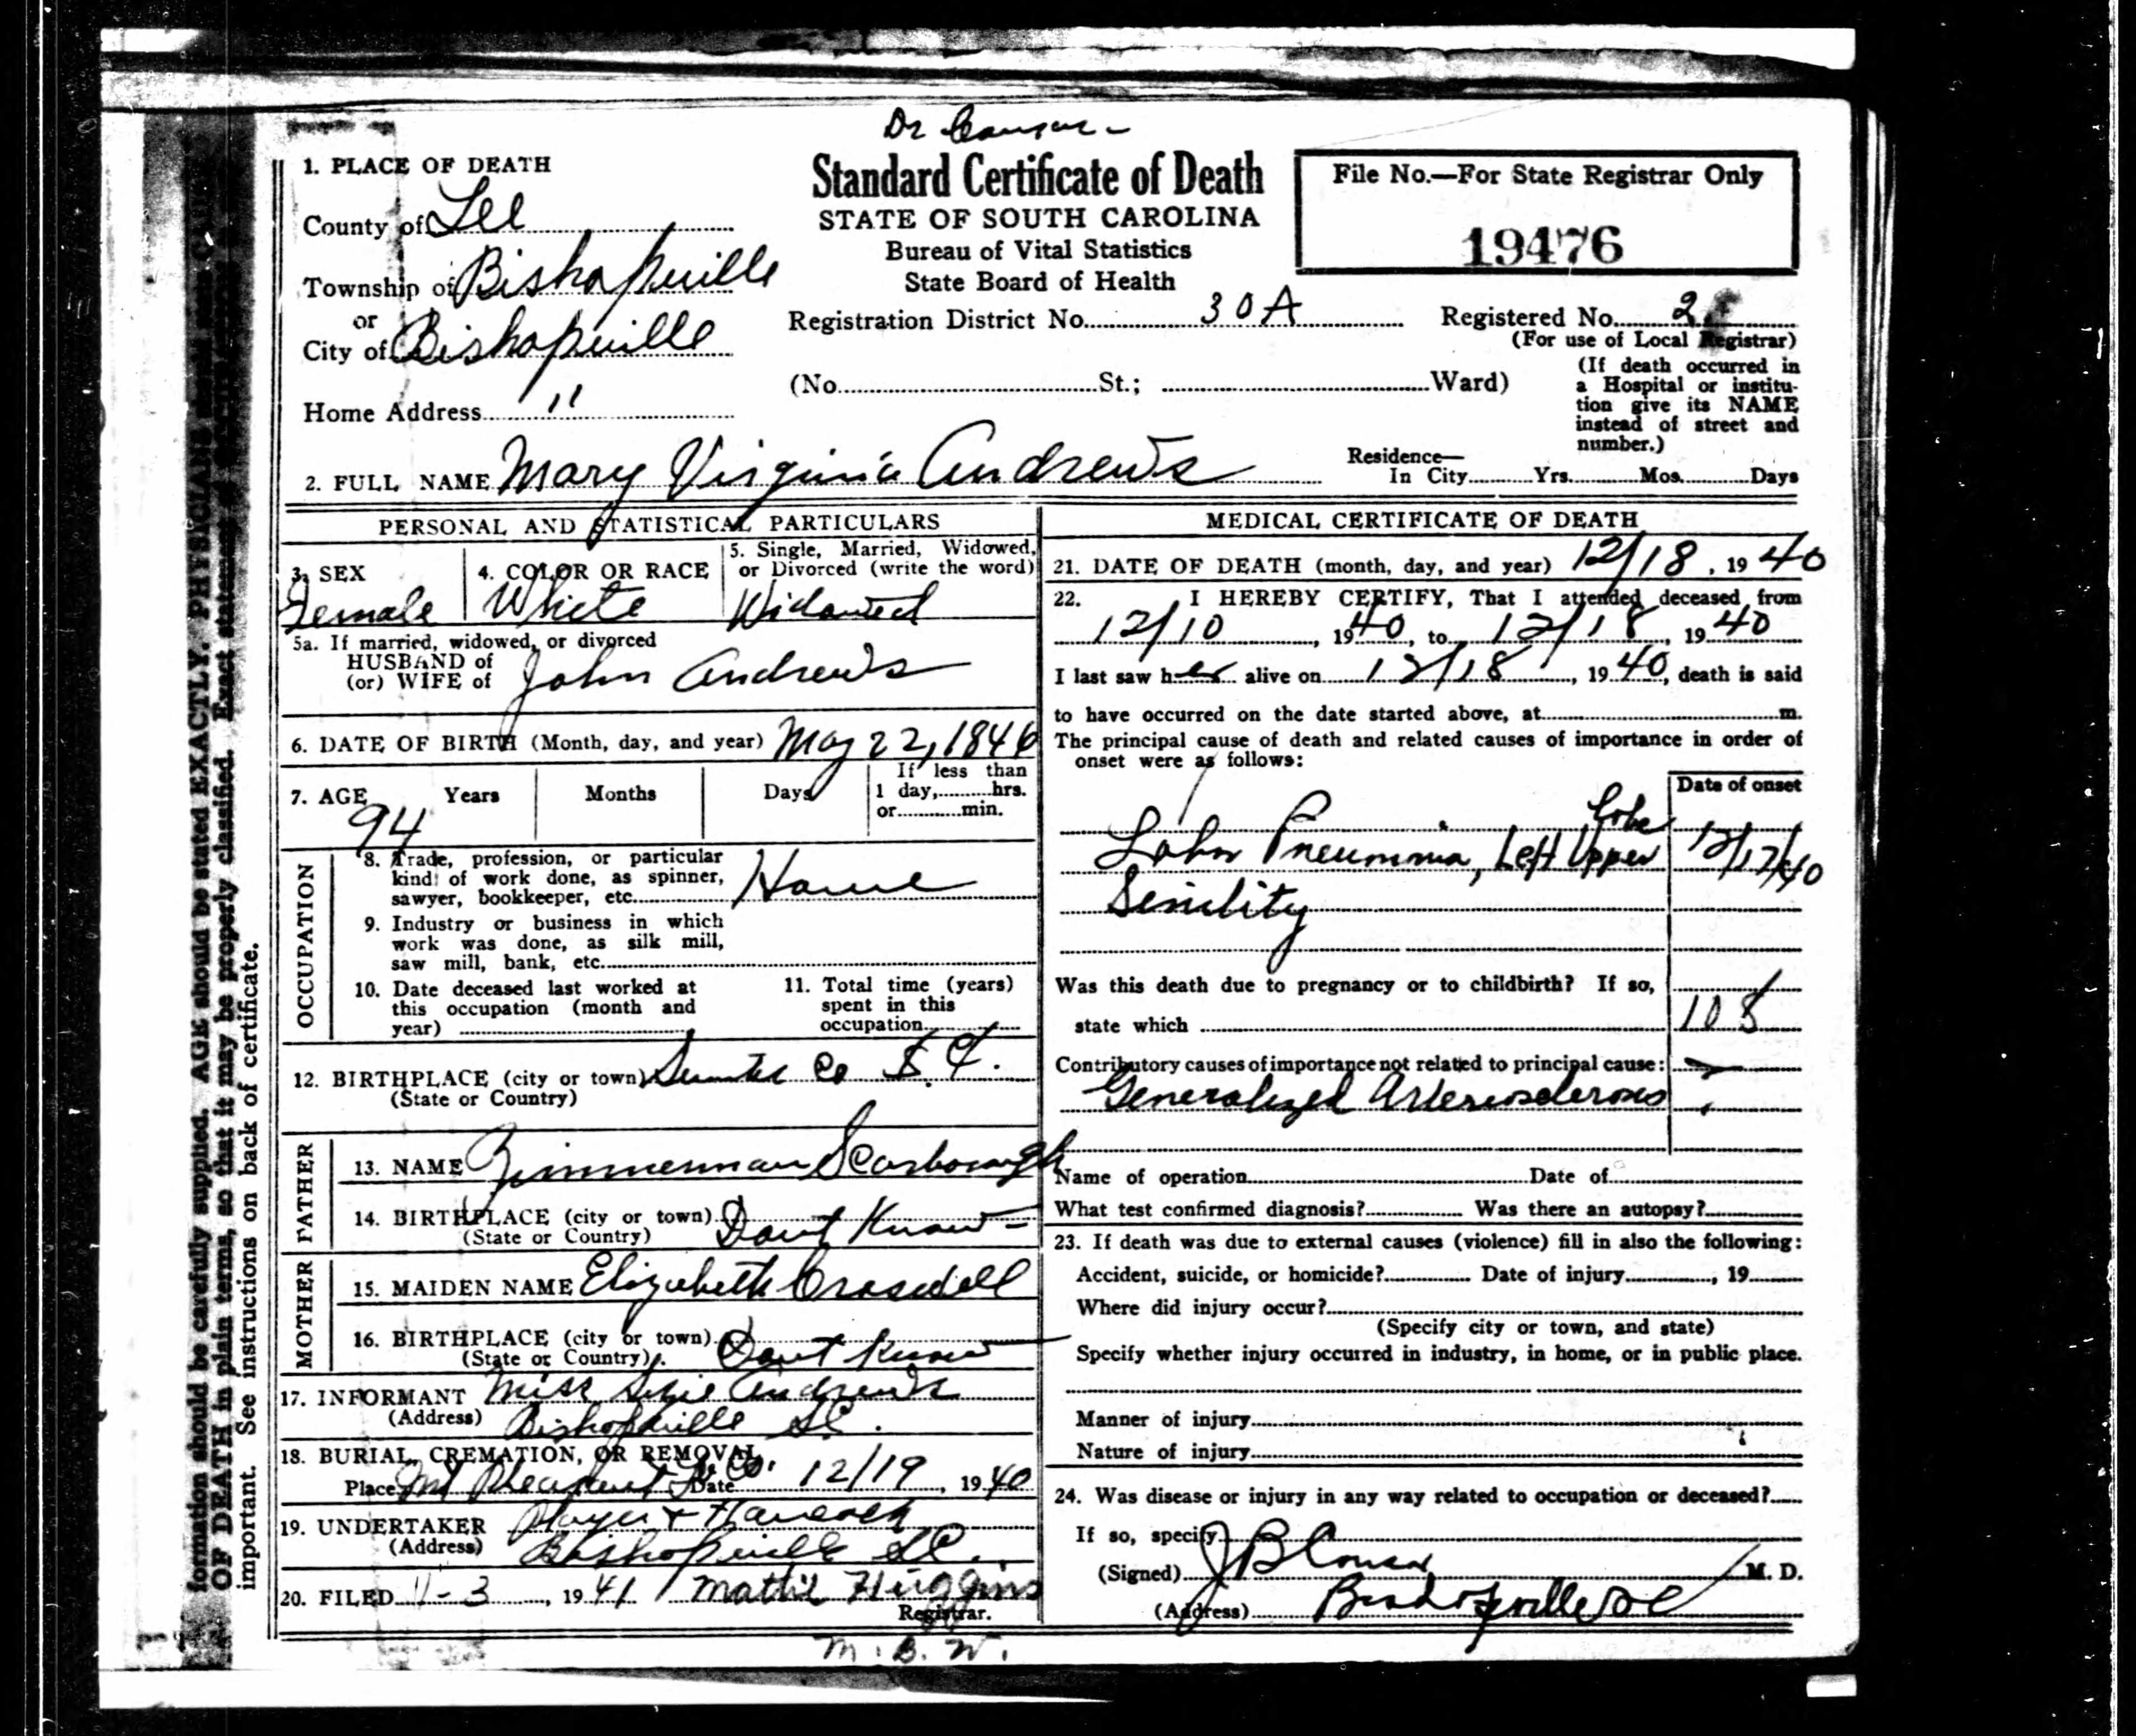 Dr
1. PLACE OF DEATH
County of Lee
Township of Bishopville
or
City of Bishopville
Home Address "
Standard Certificate of Death
STATE OF SOUTH CAROLINA
Bureau of Vital Statistics
State Board of Health
File No.—For State Registrar Only
19476
Registration District No. 30A
Registered No. 2
(For use of Local Registrar)
(No. St.; Ward)
(If death occurred in
a Hospital or institu-
tion give its NAME
instead of street and
number.)
2. FULL NAME Mary Virginia Andrews
Residence—
In City Yrs. Mos. Days
PERSONAL AND STATISTICAL PARTICULARS
3. SEX
Female
4. COLOR OR RACE
White
5. Single, Married, Widowed,
or Divorced (write the word)
Widowed
5a. If married, widowed, or divorced
HUSBAND of
(or) WIFE of John Andrews
6. DATE OF BIRTH (Month, day, and year) May 22, 1846
7. AGE Years Months Days
94
If less than
1 day, hrs.
or min.
OCCUPATION
8. Trade, profession, or particular
kind of work done, as spinner,
sawyer, bookkeeper, etc. Home
9. Industry or business in which
work was done, as silk mill,
saw mill, bank, etc.
10. Date deceased last worked at
this occupation (month and
year)
11. Total time (years)
spent in this
occupation
12. BIRTHPLACE (city or town) Sumter Co S.C.
(State or Country)
FATHER
13. NAME Zimmerman Scarborough
14. BIRTHPLACE (city or town) Dont Know
(State or Country)
MOTHER
15. MAIDEN NAME Elizabeth
16. BIRTHPLACE (city or town) Dont Know
(State or Country)
17. INFORMANT Miss Andrews
(Address) Bishopville S.C.
18. BURIAL, CREMATION, OR REMOVAL
Place Mt Pleasant Date 12/19, 1940
19. UNDERTAKER Hancock
(Address) Bishopville S.C.
20. FILED 1-3, 1941 Mattie Huggins
Registrar.
M.B.W.
MEDICAL CERTIFICATE OF DEATH
21. DATE OF DEATH (month, day, and year) 12/18, 1940
22. I HEREBY CERTIFY, That I attended deceased from
12/10, 1940, to 12/18, 1940
I last saw her alive on 12/18, 1940, death is said
to have occurred on the date started above, at m.
The principal cause of death and related causes of importance in order of
onset were as follows:
Date of onset
Lobe
Lobar Pneumonia, Left Upper 12/17/40
Senility
Was this death due to pregnancy or to childbirth? If so,
state which
108
Contributory causes of importance not related to principal cause:
Generalized Arteriosclerosis
Name of operation Date of
What test confirmed diagnosis? Was there an autopsy?
23. If death was due to external causes (violence) fill in also the following:
Accident, suicide, or homicide? Date of injury, 19
Where did injury occur?
(Specify city or town, and state)
Specify whether injury occurred in industry, in home, or in public place.
Manner of injury
Nature of injury
24. Was disease or injury in any way related to occupation or deceased?
If so, specify
(Signed) J B M. D.
(Address) Bishopville SC
formation should be carefully supplied. AGE should be stated EXACTLY. PHYSICIANS
OF DEATH in plain terms, so that it may be properly classified. Exact statement
important. See instructions on back of certificate.